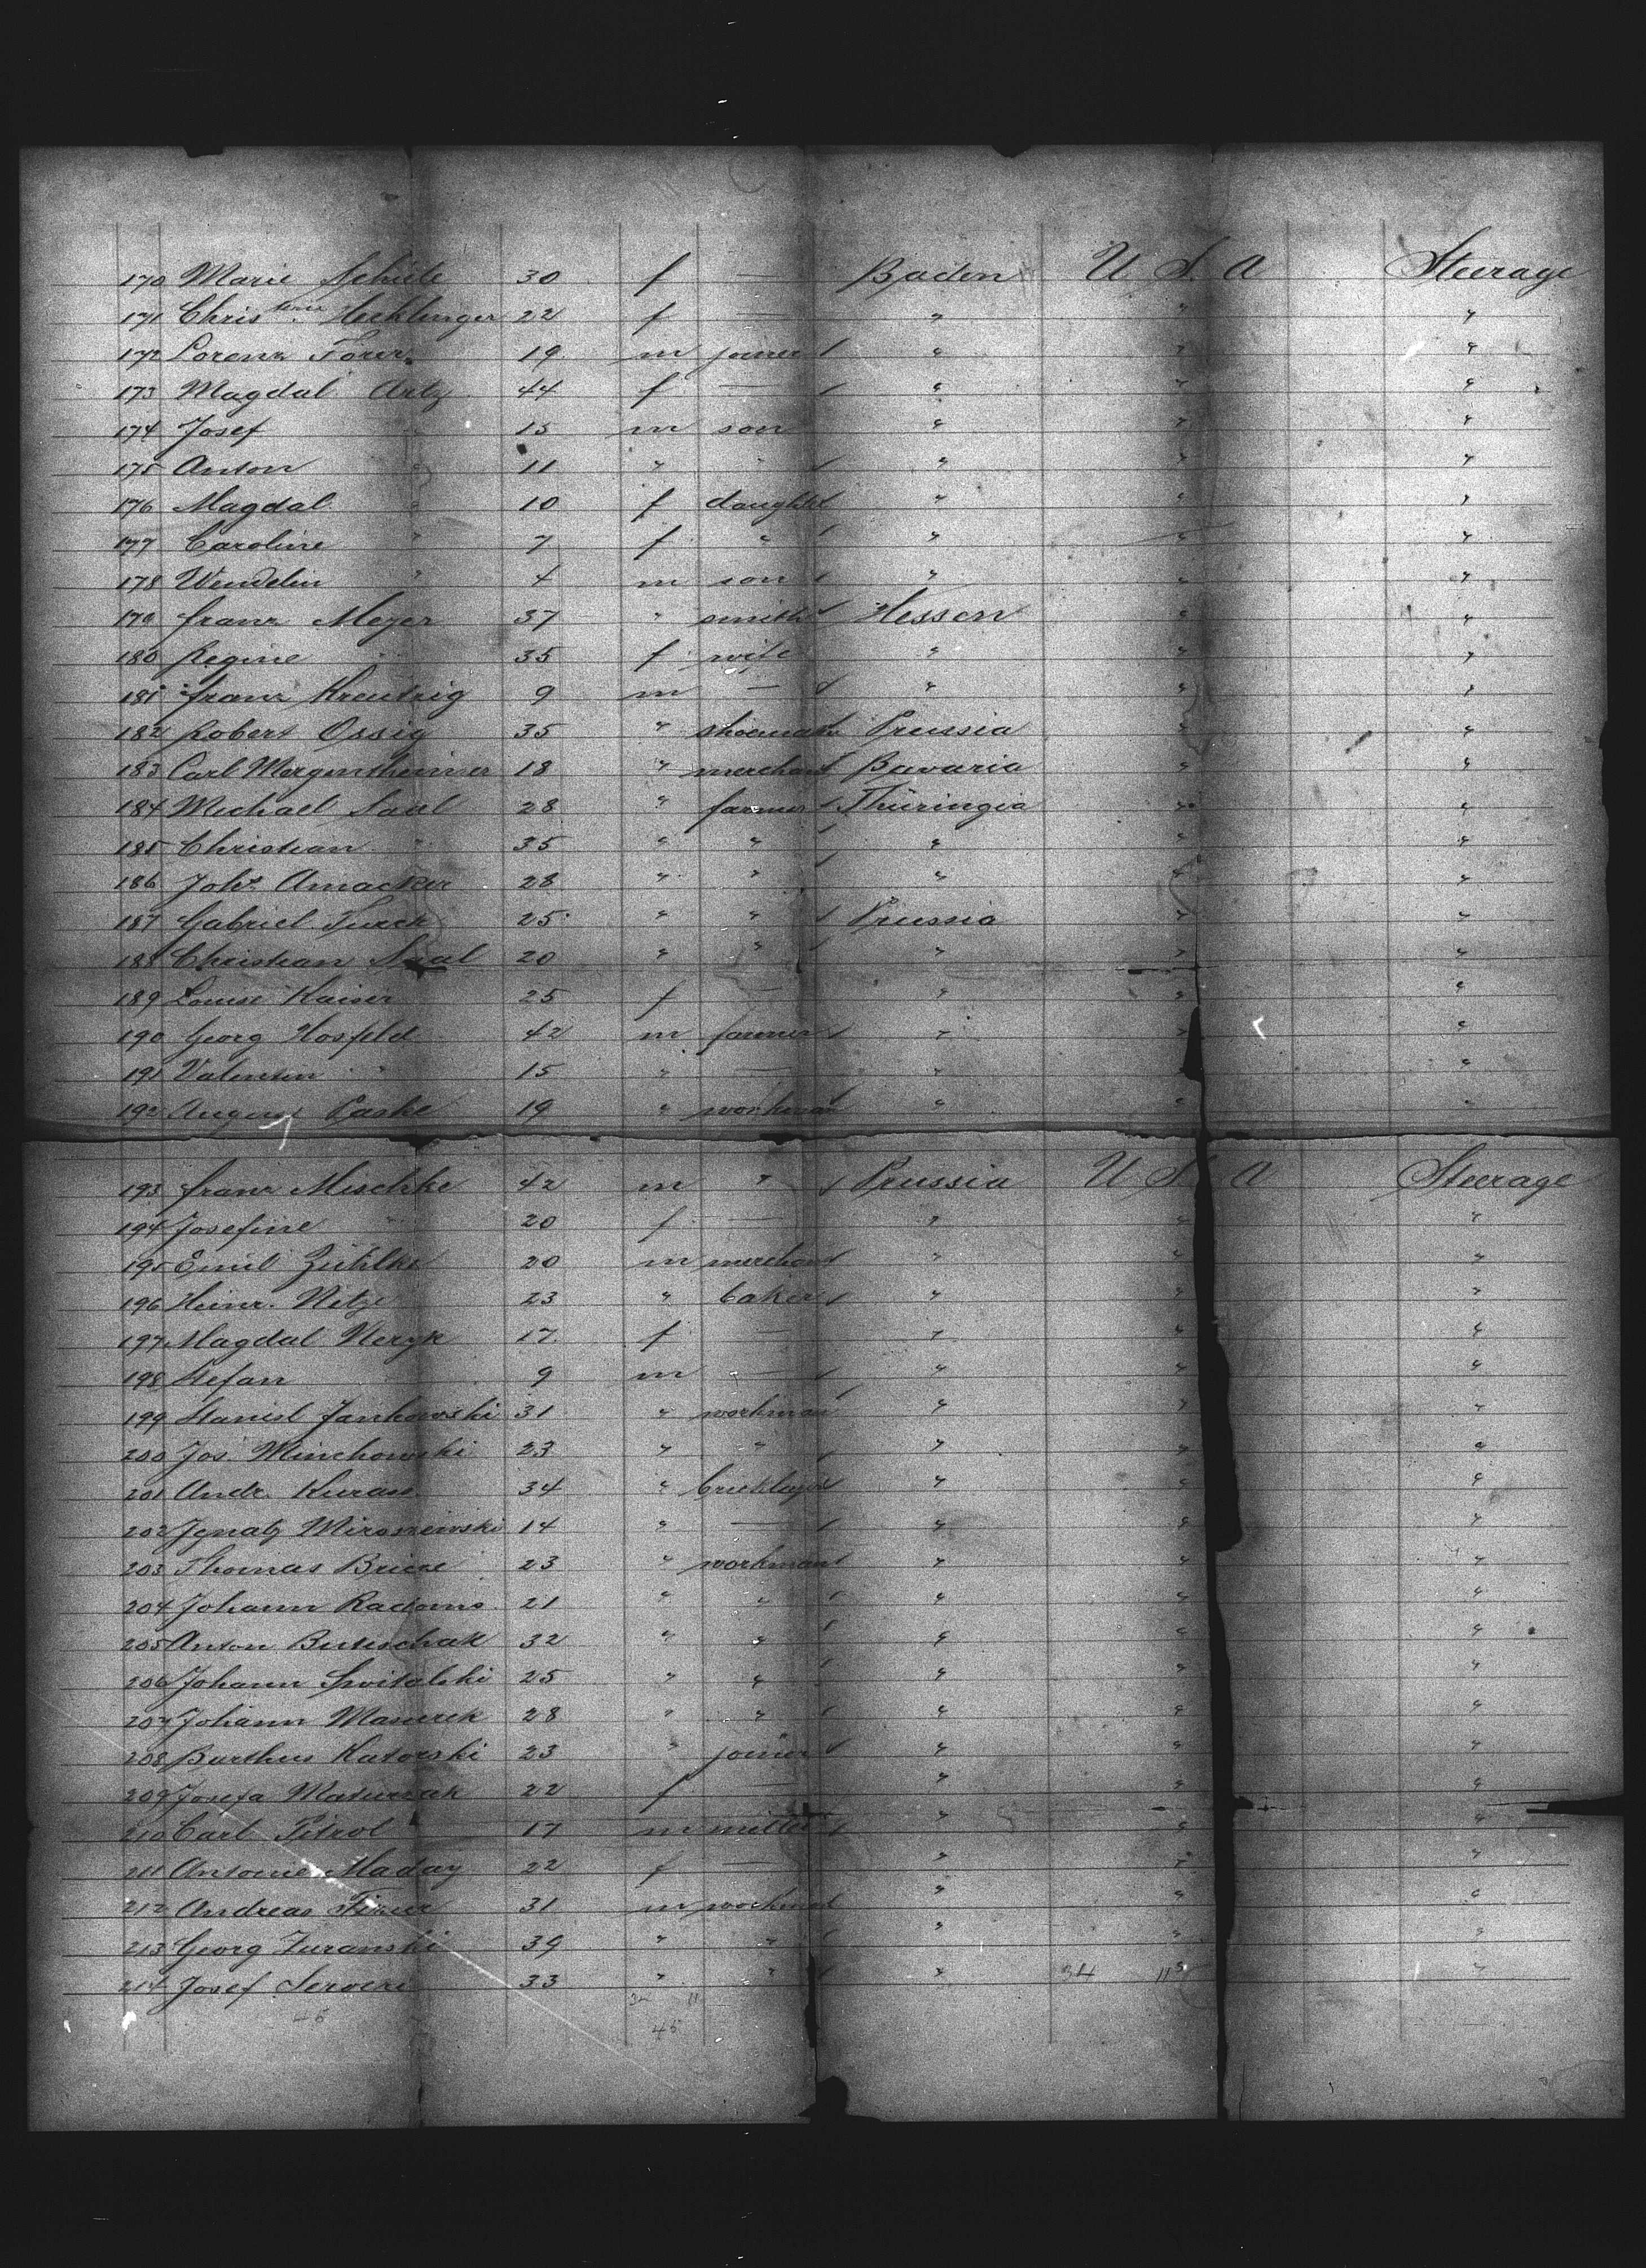 170 Marie Schiele 30 f — Baden U S. A Steerage
171 Christine Hechlinger 22 f — " " "
172 Lorenz 19 m joiner " " "
173 Magdal. Artz 44 f — " " "
174 Josef " 15 m son " " "
175 Anton " 11 " " " " "
176 Magdal. " 10 f daughter " " "
177 Caroline " 7 f " " " "
178 Wendelin " 4 m son " " "
179 Franz Meyer 37 " smith Hessen " "
180 Regine " 35 f wife " " "
181 Franz Kreutzig 9 m — " " "
182 Robert Ossig 35 " shoemaker Prussia " "
183 Carl Mergentheimer 18 " merchant Bavaria " "
184 Michael Saal 28 " farmer Thüringia " "
185 Christian " 35 " " " " "
186 Johs. Amacker 28 " " " " "
187 Gabriel Turck 25 " " Prussia " "
188 Christian Saal 20 " " " " "
189 Louise Kaiser 25 f — " " "
190 Georg Hosfeld 42 m farmer " " "
191 Valentin " 15 " — " " "
192 August Paske 19 " workman " " "
193 Franz Mischke 42 m " Prussia U S. A Steerage
194 Josefine " 20 f — " " "
195 Emil Zühlke 20 m merchant " " "
196 Heinr. Netze 23 " baker " " "
197 Magdal. 17 f — " " "
198 Stefan 9 m — " " "
199 Stanisl Jankowski 31 " workman " " "
200 Jos. Minchowski 23 " " " " "
201 Andr. Kurass 34 " bricklayer " " "
202 Ignatz 14 " — " " "
203 Thomas 23 " workman " " "
204 Johann Radoms 21 " " " " "
205 Anton 32 " " " " "
206 Johann Switalski 25 " " " " "
207 Johann 28 " " " " "
208 Barthus Katorski 23 " joiner " " "
209 Josefa Maturzak 22 f — " " "
210 Carl Pitrol 17 m miller " " "
211 Antonie Maday 22 f — " " "
212 Andreas 31 m workman " " "
213 Georg Zuranski 39 " " " " "
214 Josef 33 " " " 34 11 "
45 34 11
45